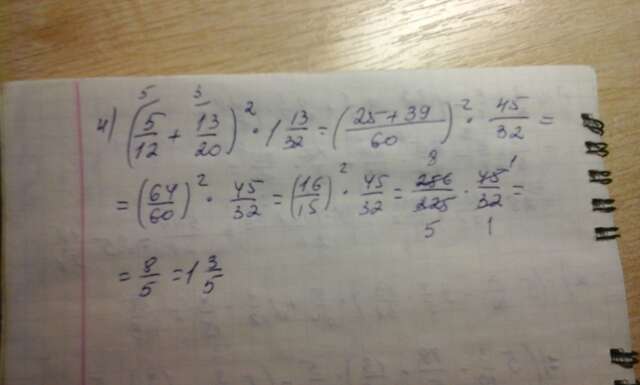 5 3
4) (5/12 + 13/20)² · 1 13/32 = (25+39/60)² · 45/32 =
= (64/60)² · 45/32 = (16/15)² · 45/32 = 256/225 · 45/32 =
8 1
5 1
= 8/5 = 1 3/5